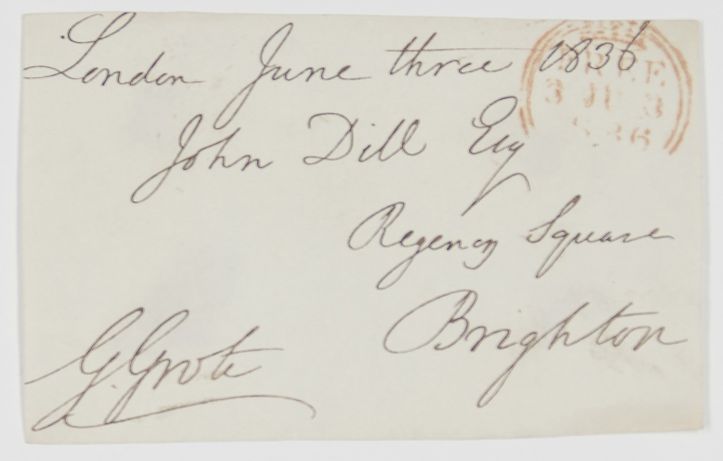 London June three 1836
FREE
3 JU 3
1836
John Dill Esq
Regency Square
Brighton
G. Grote